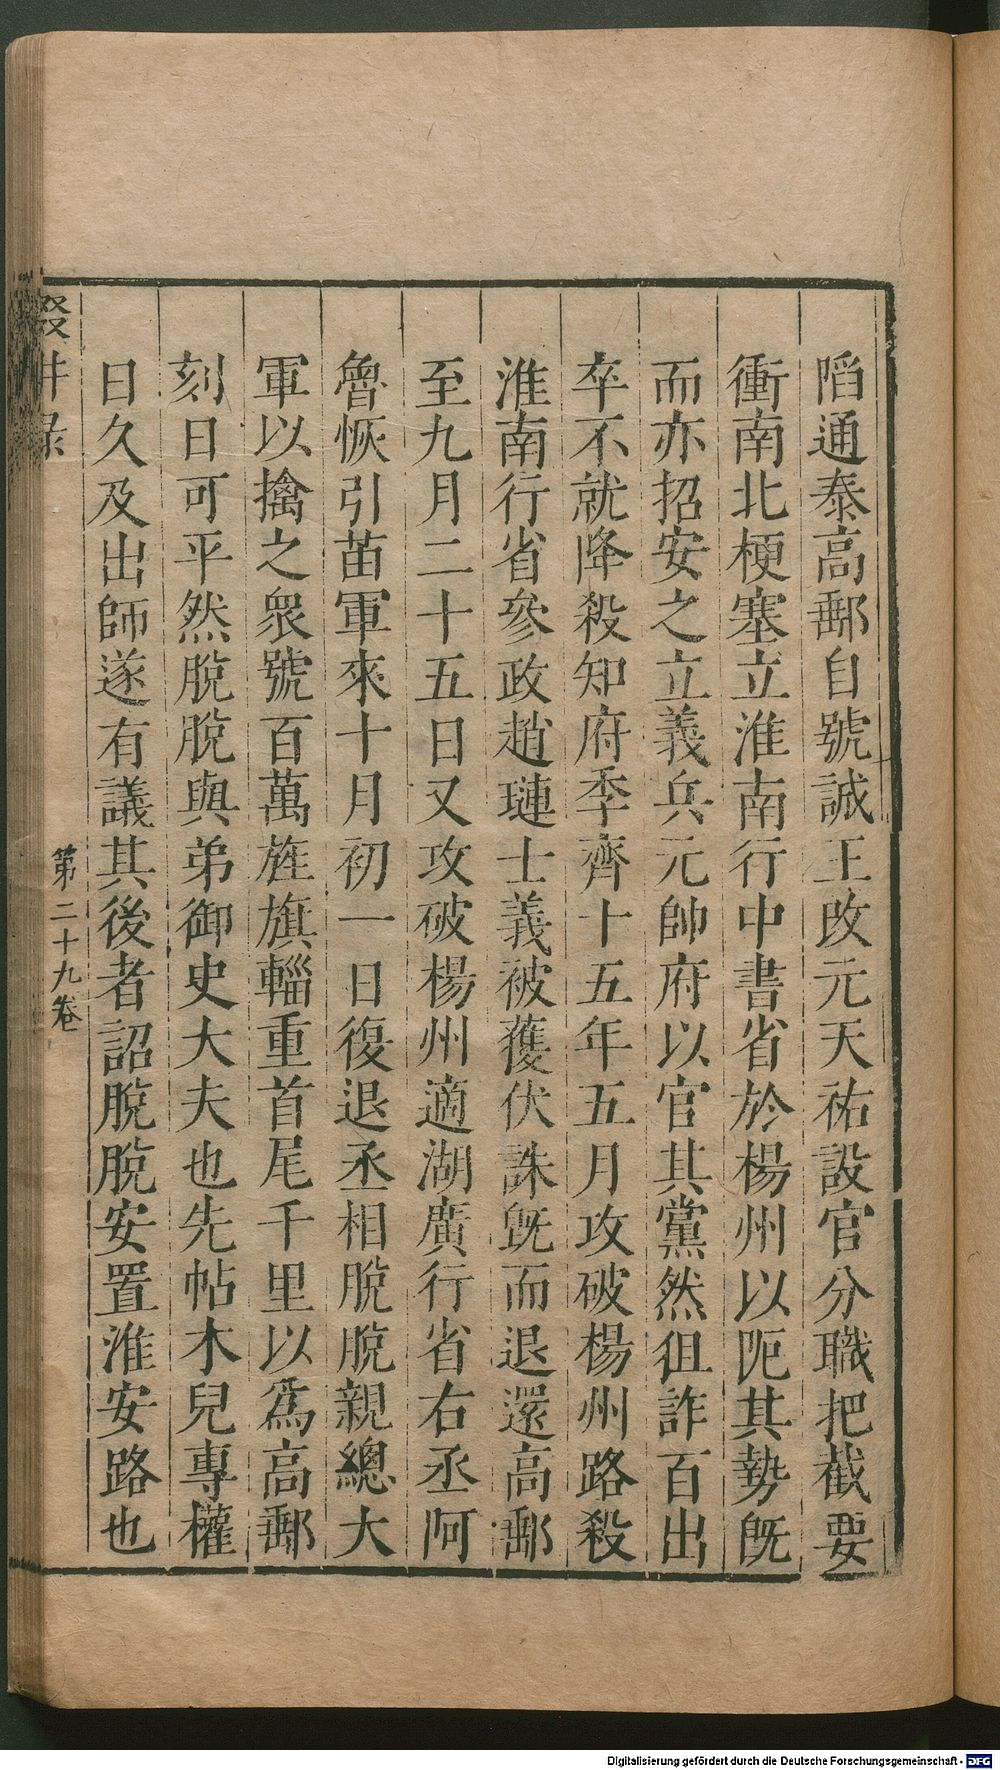 陷通泰高郵自號誠王改元天祐設官分職把截要
衝南北梗塞立淮南行中書省於楊州以阨其勢旣
而亦招安之立義兵元帥府以官其黨然狙詐百出
卒不就降殺知府李齊十五年五月攻破楊州路殺
淮南行省參政趙璉士義被獲伏誅旣而退還高郵
至九月二十五日又攻破楊州適湖廣行省右丞阿
魯恢引苗軍來十月初一日復退丞相脫脫親總大
軍以擒之衆號百萬旌旗輜重首尾千里以爲高郵
刻日可平然脫脫與弟御史大夫也先帖木兒專權
日久及出師遂有議其後者詔脫脫安置淮安路也
第二十九卷
Digitalisierung gefördert durch die Deutsche Forschungsgemeinschaft - DFG